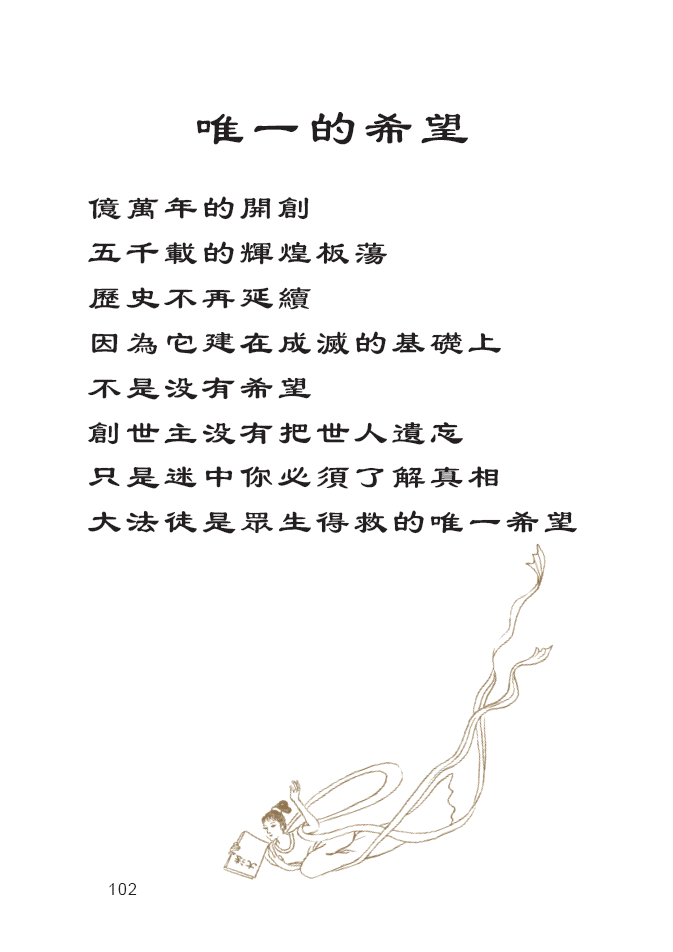 唯一的希望
億萬年的開創
五千載的輝煌板蕩
歷史不再延續
因為它建在成滅的基礎上
不是没有希望
創世主没有把世人遺忘
只是迷中你必須了解真相
大法徒是眾生得救的唯一希望
102